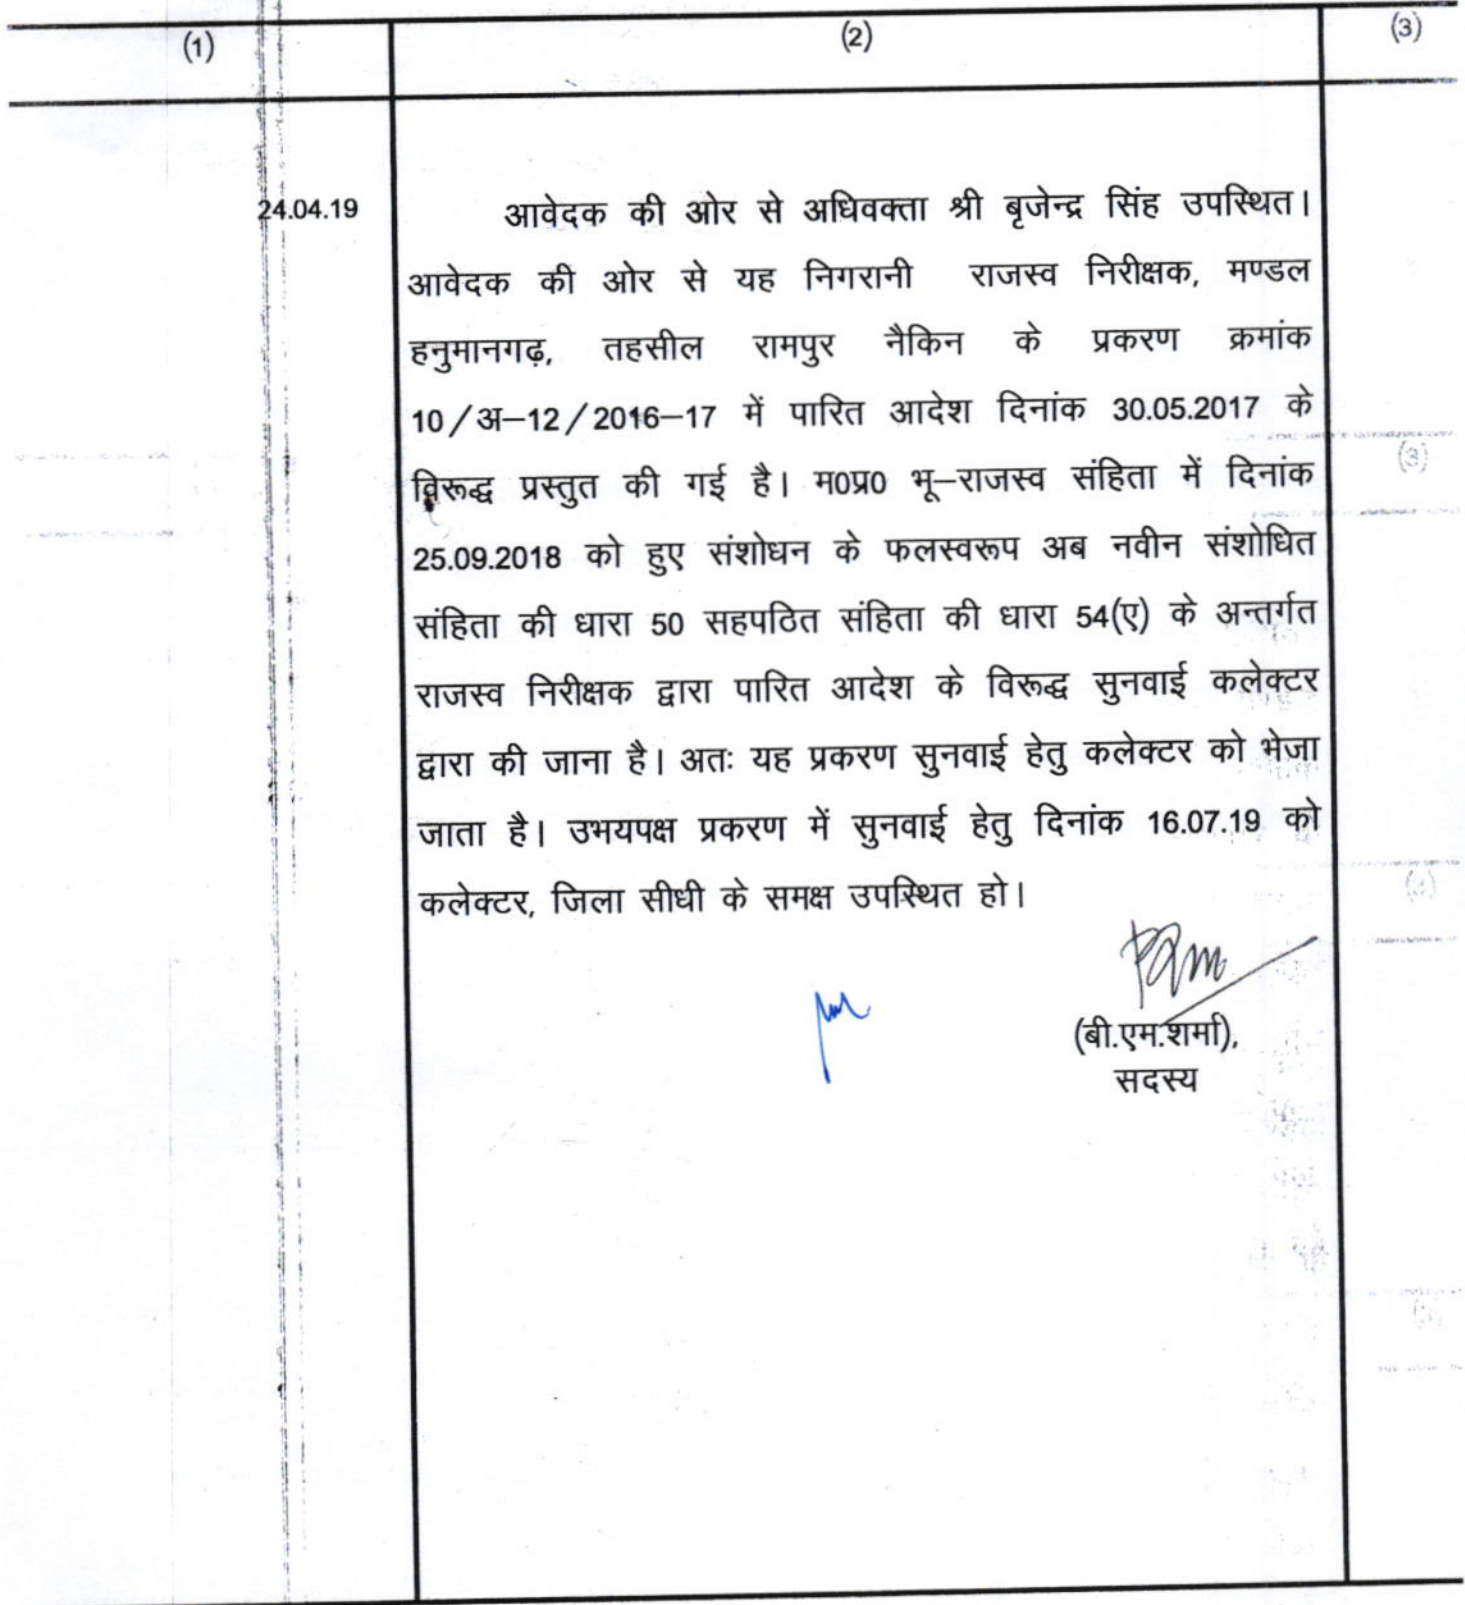 (1) (2) (3)
24.04.19 आवेदक की ओर से अधिवक्ता श्री बृजेन्द्र सिंह उपस्थित।
आवेदक की ओर से यह निगरानी राजस्व निरीक्षक, मण्डल
हनुमानगढ़, तहसील रामपुर नैकिन के प्रकरण क्रमांक
10/अ–12/2016–17 में पारित आदेश दिनांक 30.05.2017 के
विरूद्ध प्रस्तुत की गई है। म0प्र0 भू–राजस्व संहिता में दिनांक
25.09.2018 को हुए संशोधन के फलस्वरूप अब नवीन संशोधित
संहिता की धारा 50 सहपठित संहिता की धारा 54(ए) के अन्तर्गत
राजस्व निरीक्षक द्वारा पारित आदेश के विरूद्ध सुनवाई कलेक्टर
द्वारा की जाना है। अतः यह प्रकरण सुनवाई हेतु कलेक्टर को भेजा
जाता है। उभयपक्ष प्रकरण में सुनवाई हेतु दिनांक 16.07.19 को
कलेक्टर, जिला सीधी के समक्ष उपस्थित हो।
(बी.एम.शर्मा),
सदस्य